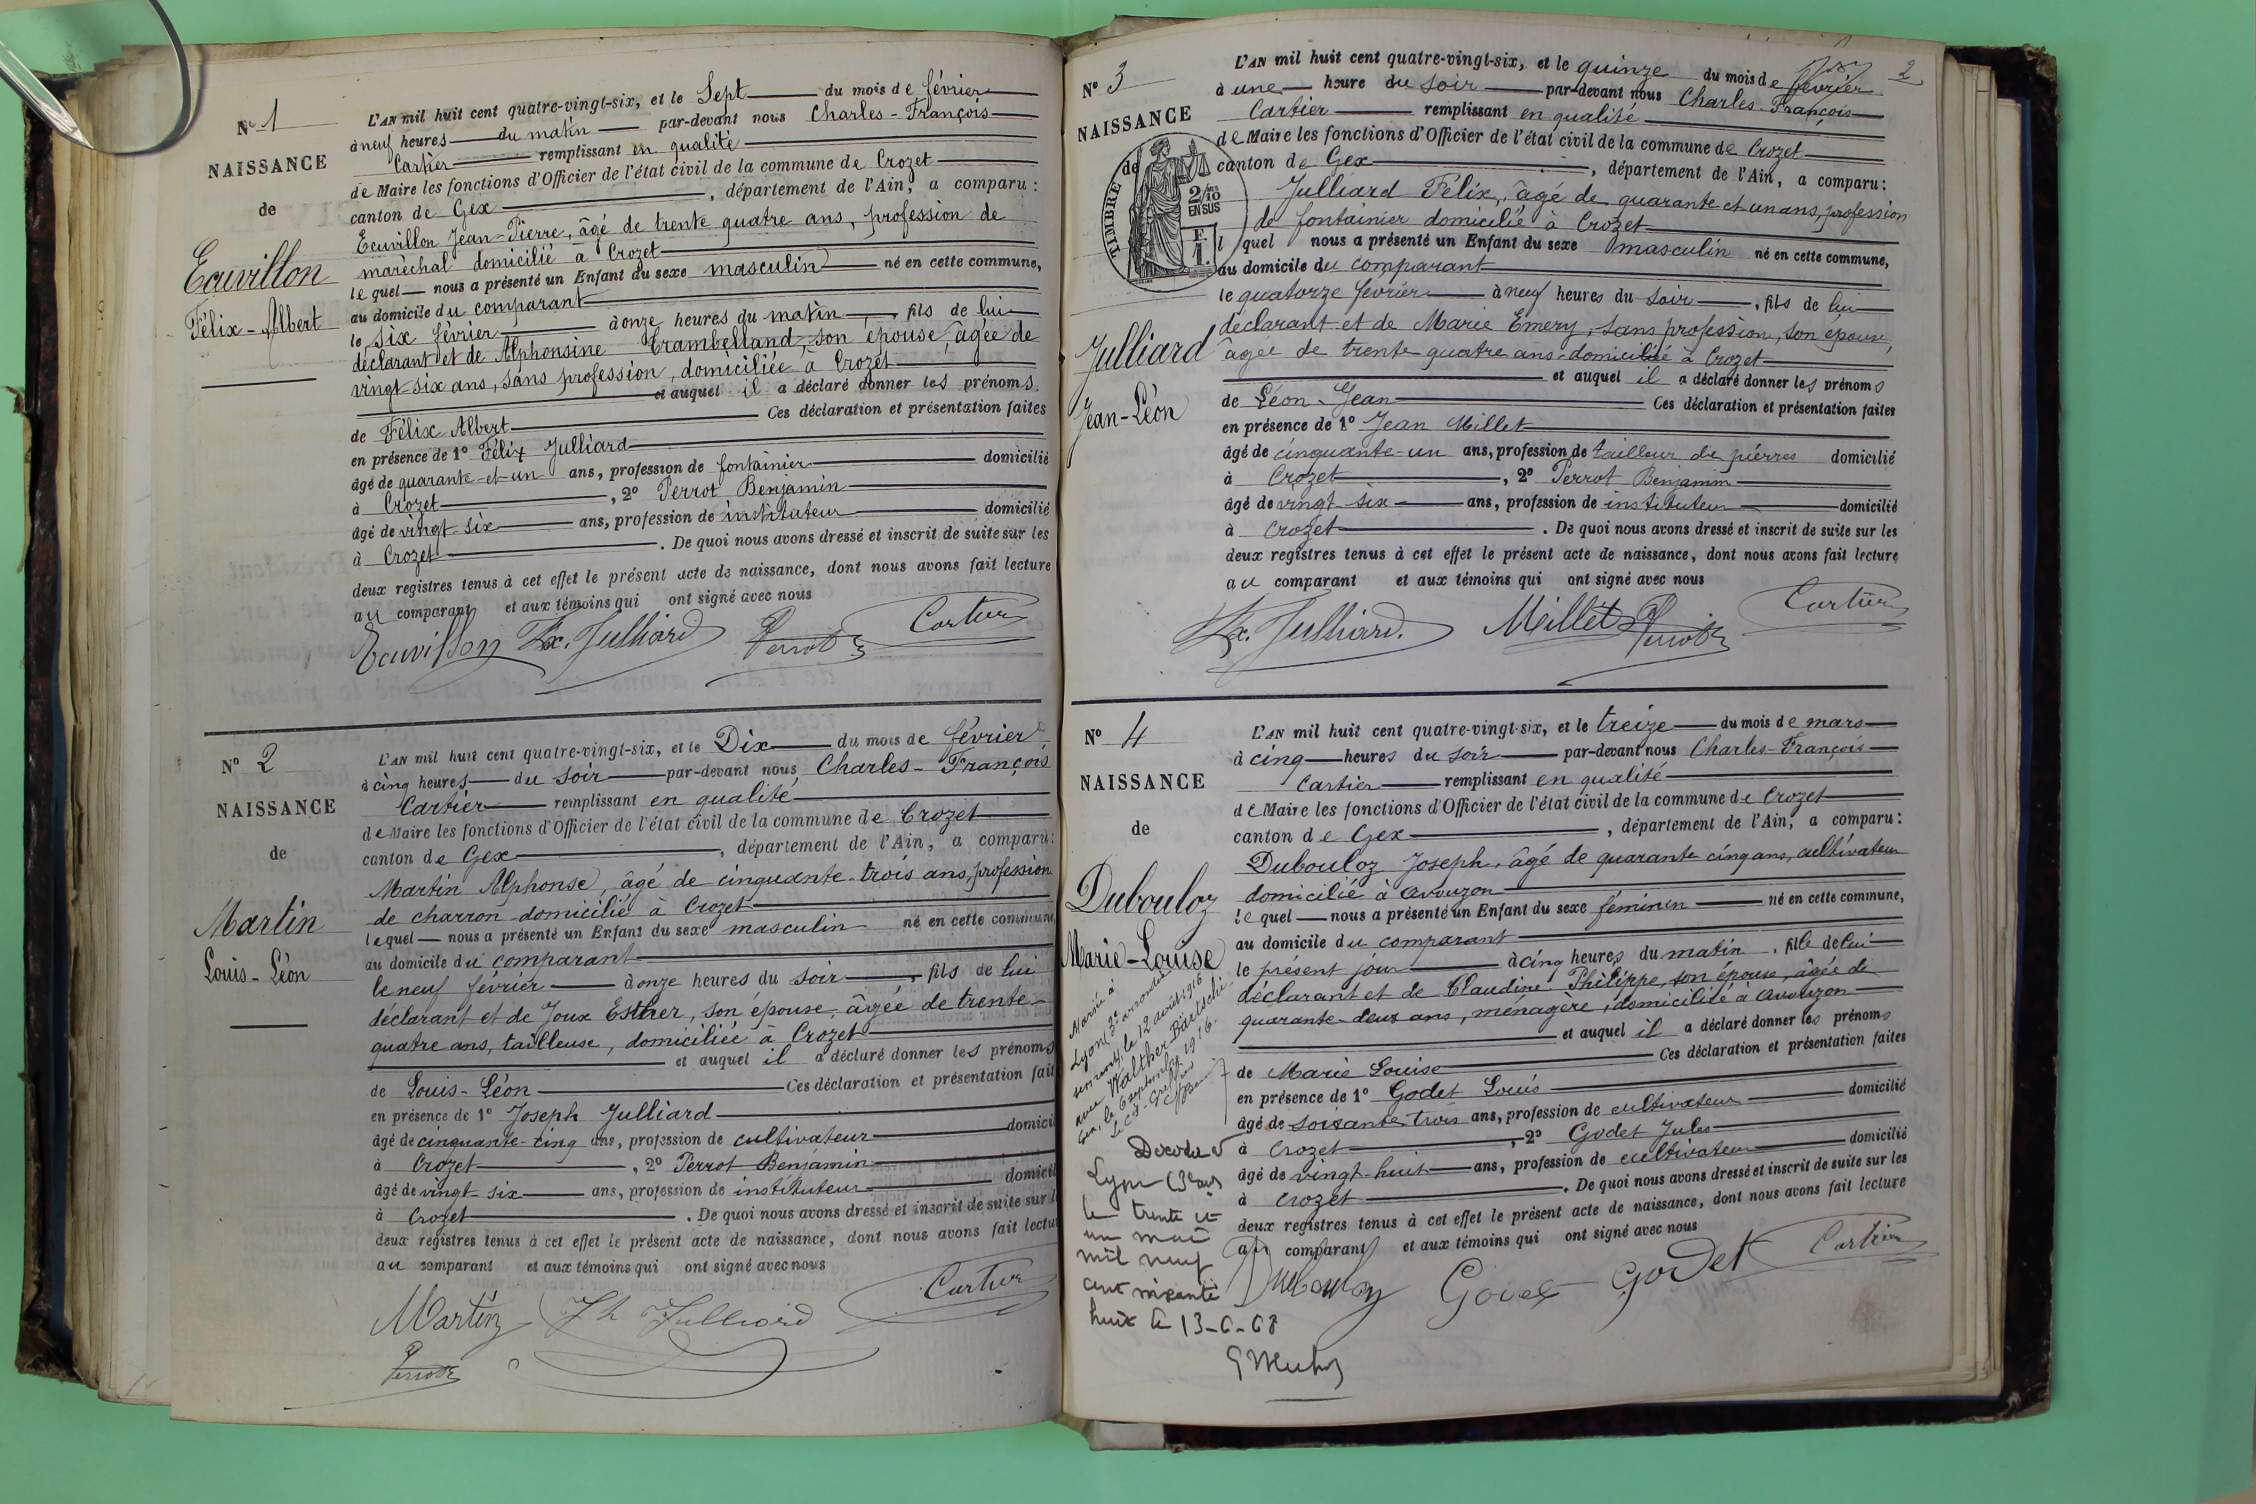 N° 1
NAISSANCE
de
Ecuvillon
Félix-Albert
L'AN mil huit cent quatre-vingt-six, et le Sept du mois de février
à neuf heures du matin par-devant nous Charles-François
Cartier remplissant en qualité
de Maire les fonctions d'Officier de l'état civil de la commune de Crozet
canton de Gex, département de l'Ain, a comparu:
Ecuvillon Jean-Pierre, âgé de trente quatre ans, profession de
maréchal domicilié à Crozet
lequel nous a présenté un Enfant du sexe masculin né en cette commune,
au domicile du comparant
le six février à onze heures du matin, fils de lui
déclarant et de Alphonsine Trambelland, son épouse, âgée de
vingt-six ans, sans profession, domiciliée à Crozet
et auquel il a déclaré donner les prénoms
de Félix Albert Ces déclaration et présentation faites
en présence de 1° Félix Julliard
âgé de quarante-et-un ans, profession de fontainier domicilié
à Crozet, 2° Perrot Benjamin
âgé de vingt-six ans, profession de instituteur domicilié
à Crozet. De quoi nous avons dressé et inscrit de suite sur les
deux registres tenus à cet effet le présent acte de naissance, dont nous avons fait lecture
au comparant et aux témoins qui ont signé avec nous
Ecuvillon Fx. Julliard Perrot Cartier
N° 2
NAISSANCE
de
Martin
Louis-Léon
L'AN mil huit cent quatre-vingt-six, et le Dix du mois de février
à cinq heures du soir par-devant nous Charles-François
Cartier remplissant en qualité
de Maire les fonctions d'Officier de l'état civil de la commune de Crozet
canton de Gex, département de l'Ain, a comparu:
Martin Alphonse, âgé de cinquante-trois ans, profession
de charron domicilié à Crozet
lequel nous a présenté un Enfant du sexe masculin né en cette commune
au domicile du comparant
le neuf février à onze heures du soir, fils de lui
déclarant et de Joux Esther, son épouse, âgée de trente-
quatre ans, tailleuse, domiciliée à Crozet
et auquel il a déclaré donner les prénoms
de Louis-Léon Ces déclaration et présentation fait
en présence de 1° Joseph Julliard
âgé de cinquante-cinq ans, profession de cultivateur domicil
à Crozet, 2° Perrot Benjamin
âgé de vingt-six ans, profession de instituteur domicil
à Crozet. De quoi nous avons dressé et inscrit de suite sur l
deux registres tenus à cet effet le présent acte de naissance, dont nous avons fait lectu
au comparant et aux témoins qui ont signé avec nous
Martin Jh Julliard Cartier
Perrot
2
N° 3
NAISSANCE
de
TIMBRE
2/10
EN SUS
Julliard
Jean-Léon
L'AN mil huit cent quatre-vingt-six, et le quinze du mois de février
à une heure du soir par-devant nous Charles-François
Cartier remplissant en qualité
de Maire les fonctions d'Officier de l'état civil de la commune de Crozet
canton de Gex, département de l'Ain, a comparu:
Julliard Félix, âgé de quarante et un ans, profession
de fontainier domicilié à Crozet
lequel nous a présenté un Enfant du sexe masculin né en cette commune,
au domicile du comparant
le quatorze février à neuf heures du soir, fils de lui
déclarant et de Marie Emery, sans profession, son épouse,
âgée de trente quatre ans domiciliée à Crozet
et auquel il a déclaré donner les prénoms
de Léon-Jean Ces déclaration et présentation faites
en présence de 1° Jean Millet
âgé de cinquante-un ans, profession de tailleur de pierres domicilié
à Crozet, 2° Perrot Benjamin
âgé de vingt-six ans, profession de instituteur domicilié
à Crozet. De quoi nous avons dressé et inscrit de suite sur les
deux registres tenus à cet effet le présent acte de naissance, dont nous avons fait lecture
au comparant et aux témoins qui ont signé avec nous
Fx. Julliard. Millet Perrot Cartier
N° 4
NAISSANCE
de
Dubouloz
Marie-Louise
Mariée à
Lyon (3e arrondis-
sement), le 12 août 1916
avec Walther Bärtschi
Gex, le 6 septembre 1916.
Le Greffier
Décédée
Lyon (3e arr)
le trente et
un mai
mil neuf
cent soixante
huit le 13-6-68
L'AN mil huit cent quatre-vingt-six, et le treize du mois de mars
à cinq heures du soir par-devant nous Charles-François
Cartier remplissant en qualité
de Maire les fonctions d'Officier de l'état civil de la commune de Crozet
canton de Gex, département de l'Ain, a comparu:
Dubouloz Joseph, âgé de quarante cinq ans, cultivateur
domicilié à Avouzon
lequel nous a présenté un Enfant du sexe féminin né en cette commune,
au domicile du comparant
le présent jour à cinq heures du matin, fille de lui
déclarant et de Claudine Philippe, son épouse, âgée de
quarante-deux ans, ménagère, domiciliée à Avouzon
et auquel il a déclaré donner les prénoms
de Marie Louise Ces déclaration et présentation faites
en présence de 1° Godet Louis
âgé de soixante trois ans, profession de cultivateur domicilié
à Crozet, 2° Godet Jules
âgé de vingt-huit ans, profession de cultivateur domicilié
à Crozet. De quoi nous avons dressé et inscrit de suite sur les
deux registres tenus à cet effet le présent acte de naissance, dont nous avons fait lecture
au comparant et aux témoins qui ont signé avec nous
Dubouloz Godet Godet Cartier